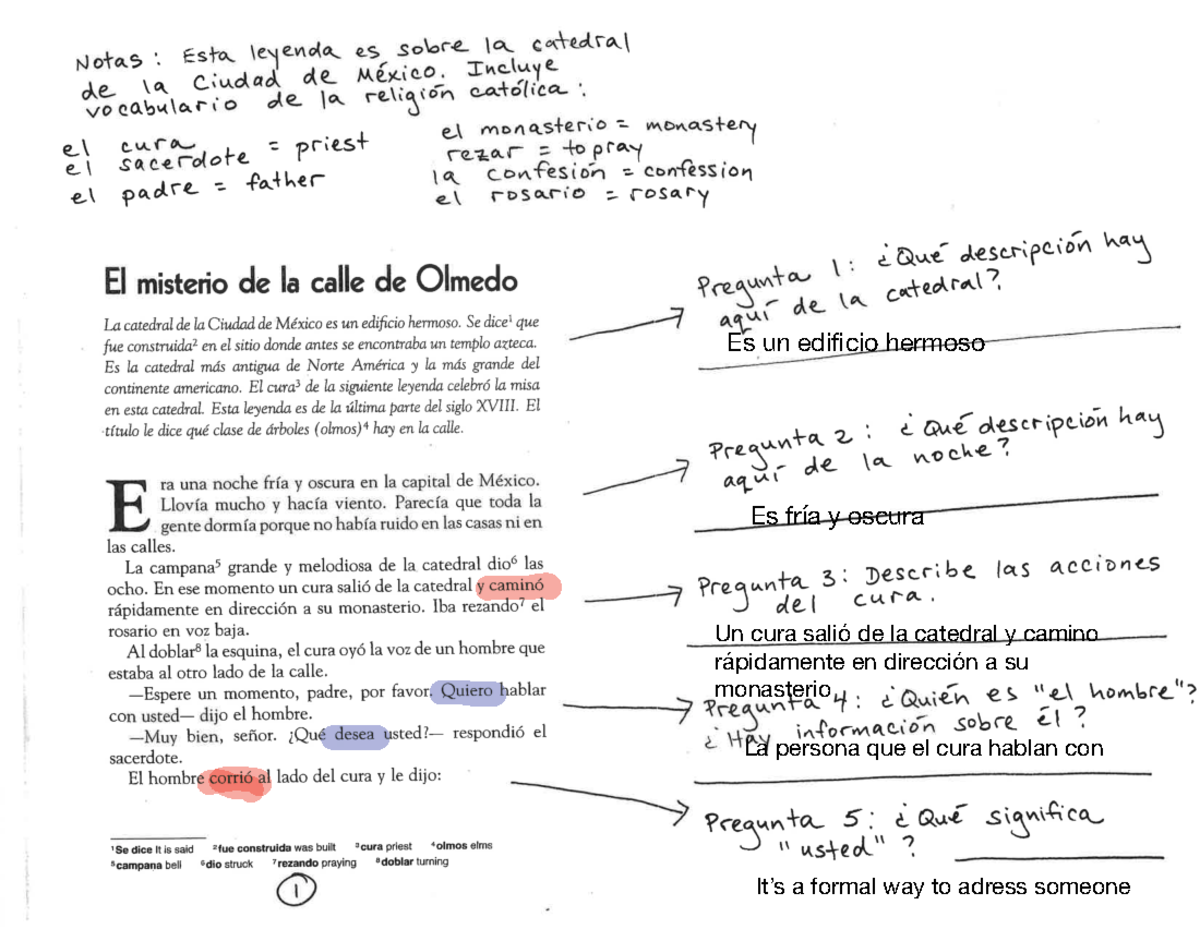 Notas: Esta leyenda es sobre la catedral
de la Ciudad de México. Incluye
vocabulario de la religión católica:
el cura
el sacerdote = priest
el padre = father
el monasterio = monastery
rezar = to pray
la confesión = confession
el rosario = rosary
El misterio de la calle de Olmedo
La catedral de la Ciudad de México es un edificio hermoso. Se dice¹ que
fue construida² en el sitio donde antes se encontraba un templo azteca.
Es la catedral más antigua de Norte América y la más grande del
continente americano. El cura³ de la siguiente leyenda celebró la misa
en esta catedral. Esta leyenda es de la última parte del siglo XVIII. El
título le dice qué clase de árboles (olmos)⁴ hay en la calle.
Era una noche fría y oscura en la capital de México.
Llovía mucho y hacía viento. Parecía que toda la
gente dormía porque no había ruido en las casas ni en
las calles.
La campana⁵ grande y melodiosa de la catedral dio⁶ las
ocho. En ese momento un cura salió de la catedral y caminó
rápidamente en dirección a su monasterio. Iba rezando⁷ el
rosario en voz baja.
Al doblar⁸ la esquina, el cura oyó la voz de un hombre que
estaba al otro lado de la calle.
—Espere un momento, padre, por favor. Quiero hablar
con usted— dijo el hombre.
—Muy bien, señor. ¿Qué desea usted?— respondió el
sacerdote.
El hombre corrió al lado del cura y le dijo:
¹Se dice It is said ²fue construida was built ³cura priest ⁴olmos elms
⁵campana bell ⁶dio struck ⁷rezando praying ⁸doblar turning
1
Pregunta 1: ¿Qué descripción hay
aquí de la catedral?
Es un edificio hermoso
Pregunta 2: ¿Qué descripción hay
aquí de la noche?
Es fría y oscura
Pregunta 3: Describe las acciones
del cura.
Un cura salió de la catedral y camino
rápidamente en dirección a su
monasterio
Pregunta 4: ¿Quién es "el hombre"?
¿Hay información sobre él?
La persona que el cura hablan con
Pregunta 5: ¿Qué significa
"usted"?
It's a formal way to adress someone